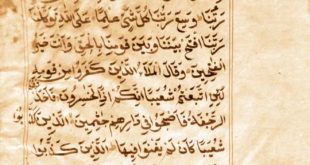 رَبُّنَا وَسِعَ رَبُّنَا كُلَّ شَيْءٍ عِلْمًا عَلَى اللَّهِ تَوَكَّلْنَا
رَبَّنَا افْتَحْ بَيْنَنَا وَبَيْنَ قَوْمِنَا بِالْحَقِّ وَأَنْتَ خَيْرُ
الْفَٰتِحِينَ وَقَالَ الْمَلَأُ الَّذِينَ كَفَرُوا مِنْ قَوْمِهِ
لَئِنِ اتَّبَعْتُمْ شُعَيْبًا إِنَّكُمْ إِذًا لَخَٰسِرُونَ فَأَخَذَتْهُمُ
الرَّجْفَةُ فَأَصْبَحُوا فِي دَارِهِمْ جَٰثِمِينَ الَّذِينَ كَذَّبُوا
شُعَيْبًا كَأَنْ لَمْ يَغْنَوْا فِيهَا الَّذِينَ كَذَّبُوا